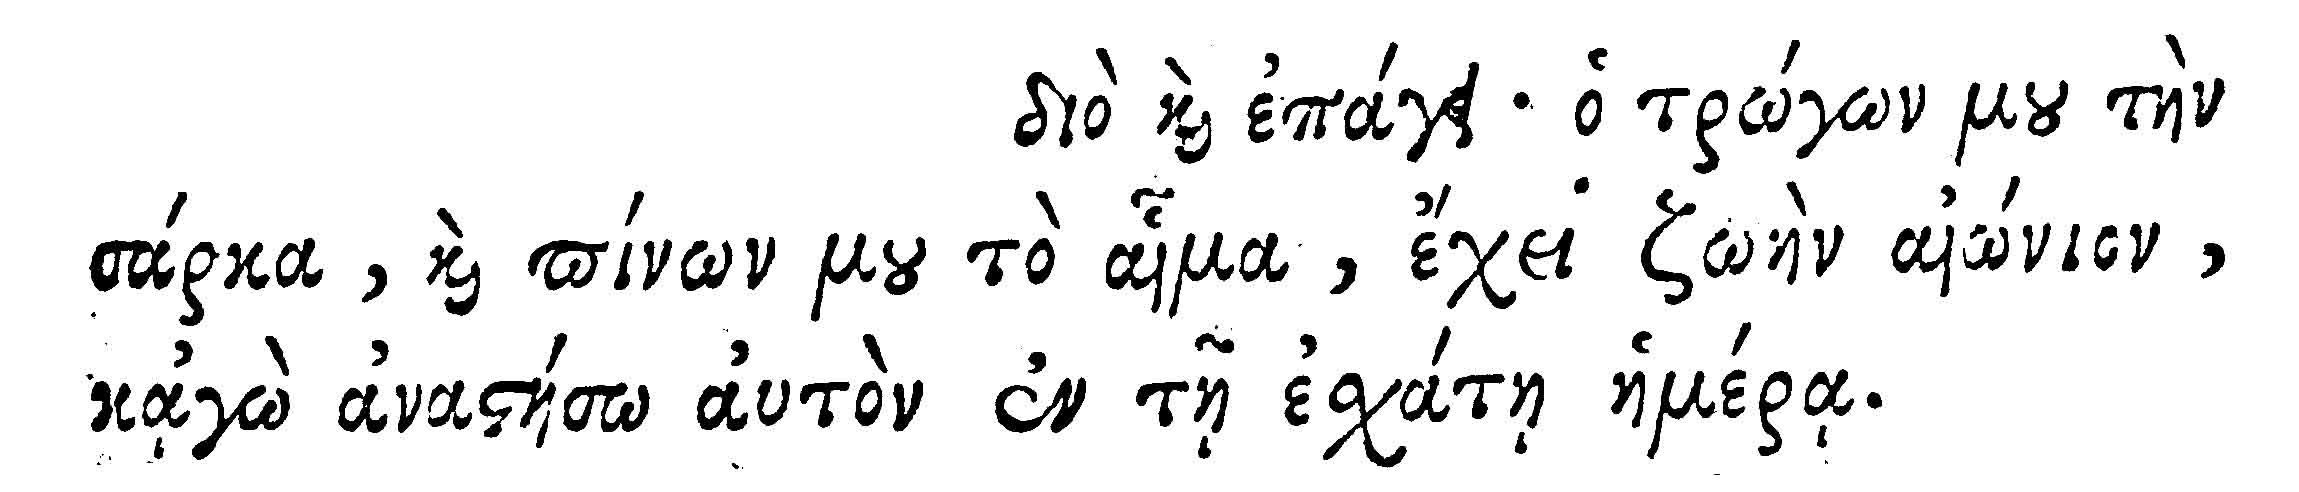 διὸ ϗ̀ ἐπάγει · ὁ τρώγων μȣ τὴν
σάρκα, ϗ̀ πίνων μȣ τὸ αἷμα, ἔχει ζωὴν αἰώνιον,
κᾀγὼ ἀναϛήσω ἀυτὸν ἐν τῇ ἐσχάτῃ ἡμέρᾳ.